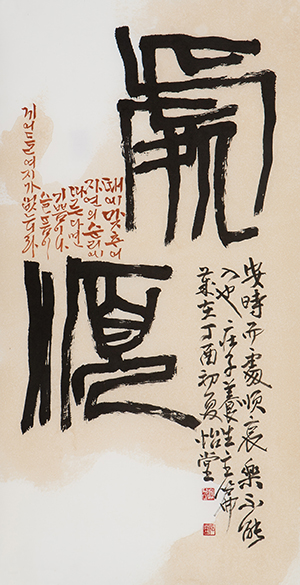 處
順
때에 맞추어
자연의 순리에
따른다면
기쁨이나
슬픔이
끼어들 여지가 없느니라
安時而處順哀樂不能
入也 莊子養生主篇
歲在丁酉初夏 怡堂